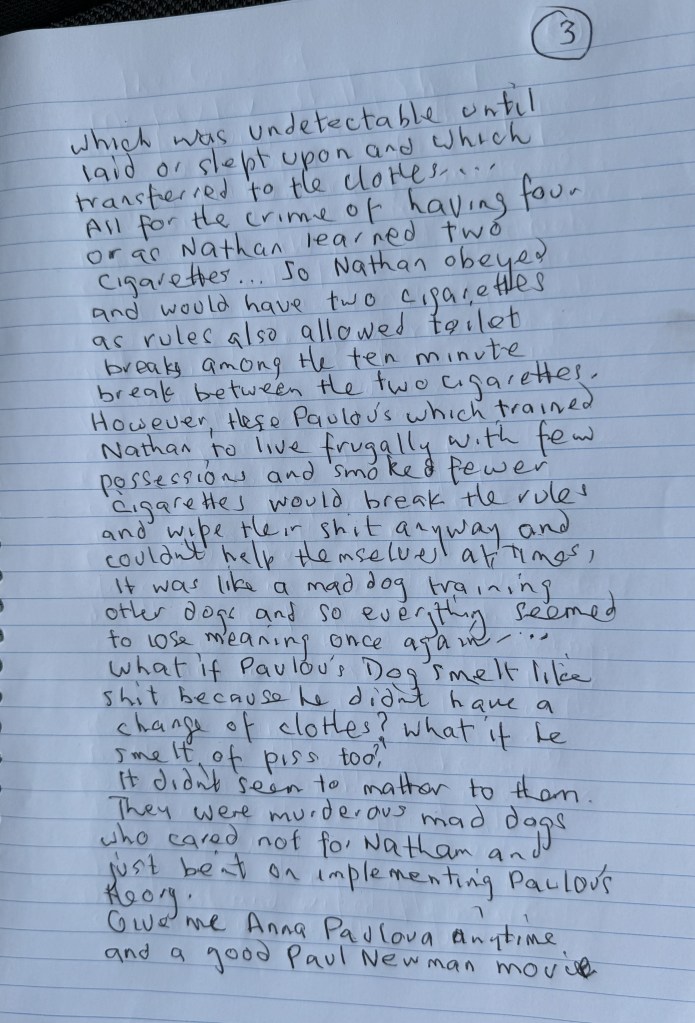 3
which was undetectable until
laid or slept upon and which
transferred to the clothes.....
All for the crime of having four
or as Nathan learned two
cigarettes... So Nathan obeyed
and would have two cigarettes
as rules also allowed toilet
breaks among the ten minute
break between the two cigarettes.
However, these Pavlov's which trained
Nathan to live frugally with few
possessions and smoked fewer
cigarettes would break the rules
and wipe their shit anyway and
couldn't help themselves at times,
It was like a mad dog training
other dogs and so everything seemed
to lose meaning once again....
What if Pavlov's Dog smelt like
shit because he didn't have a
change of clothes? What if he
smelt of piss too?
It didn't seem to matter to them.
They were murderous mad dogs
who cared not for Nathan and
just bent on implementing Pavlov's
theory.
Give me Anna Pavlova anytime
and a good Paul Newman movie